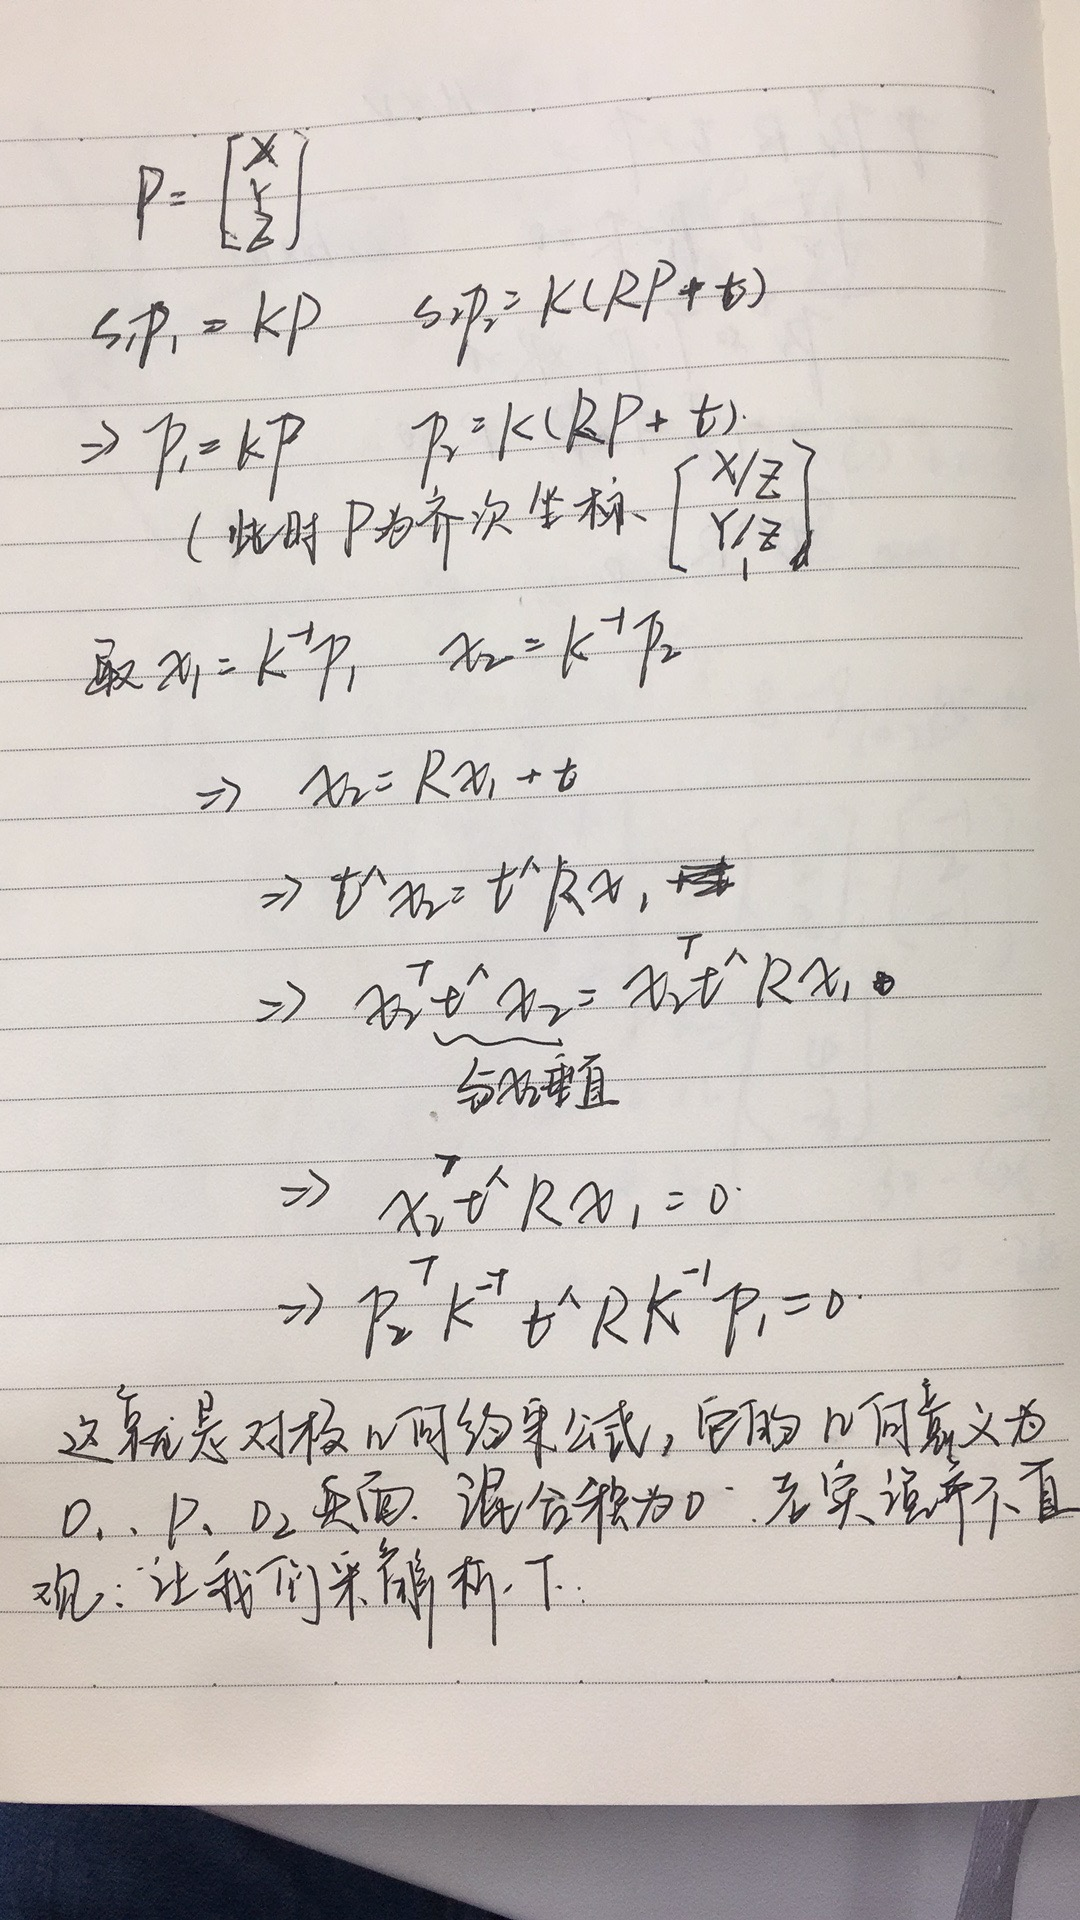 P = [X Y Z]
s₁p₁ = KP s₂p₂ = K(RP + t)
⇒ p₁ = KP p₂ = K(RP + t).
(此时P为齐次坐标 [X/Z Y/Z 1]
取 x₁ = K⁻¹p₁ x₂ = K⁻¹p₂
⇒ x₂ = Rx₁ + t
⇒ t^x₂ = t^Rx₁
⇒ x₂ᵀt^x₂ = x₂ᵀt^Rx₁
与x₂垂直
⇒ x₂ᵀt^Rx₁ = 0.
⇒ p₂ᵀK⁻ᵀt^RK⁻¹p₁ = 0.
这就是对极几何约束公式,它的几何意义为
O₁、P、O₂共面. 混合积为0. 老实说并不直
观:让我们来解析一下: